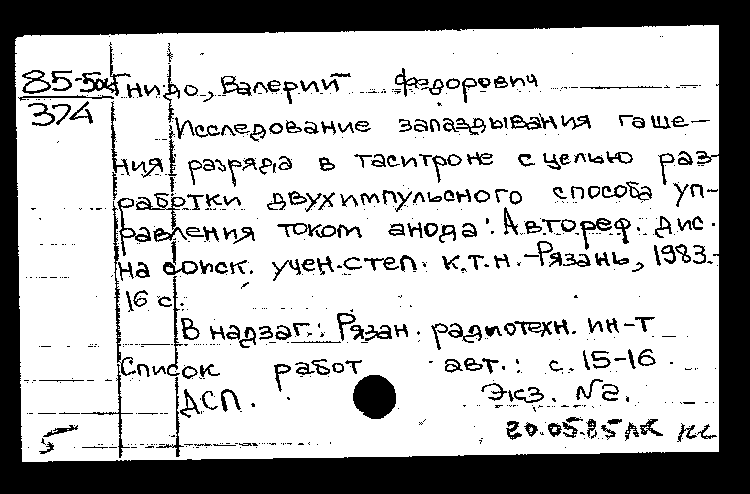 85-504 Гнидо, Валерий Федорович
374
Исследование запаздывания гаше-
ния разряда в таситроне с целью раз-
работки двухимпульсного способа уп-
равления током анода: Автореф. дис.
на соиск. учен. степ. к.т.н. - Рязань, 1983.-
16 с.
В надзаг.: Рязан. радиотехн. ин-т
Список работ авт.: с. 15-16.
ДСП. Экз. №2.
5 20.05.85